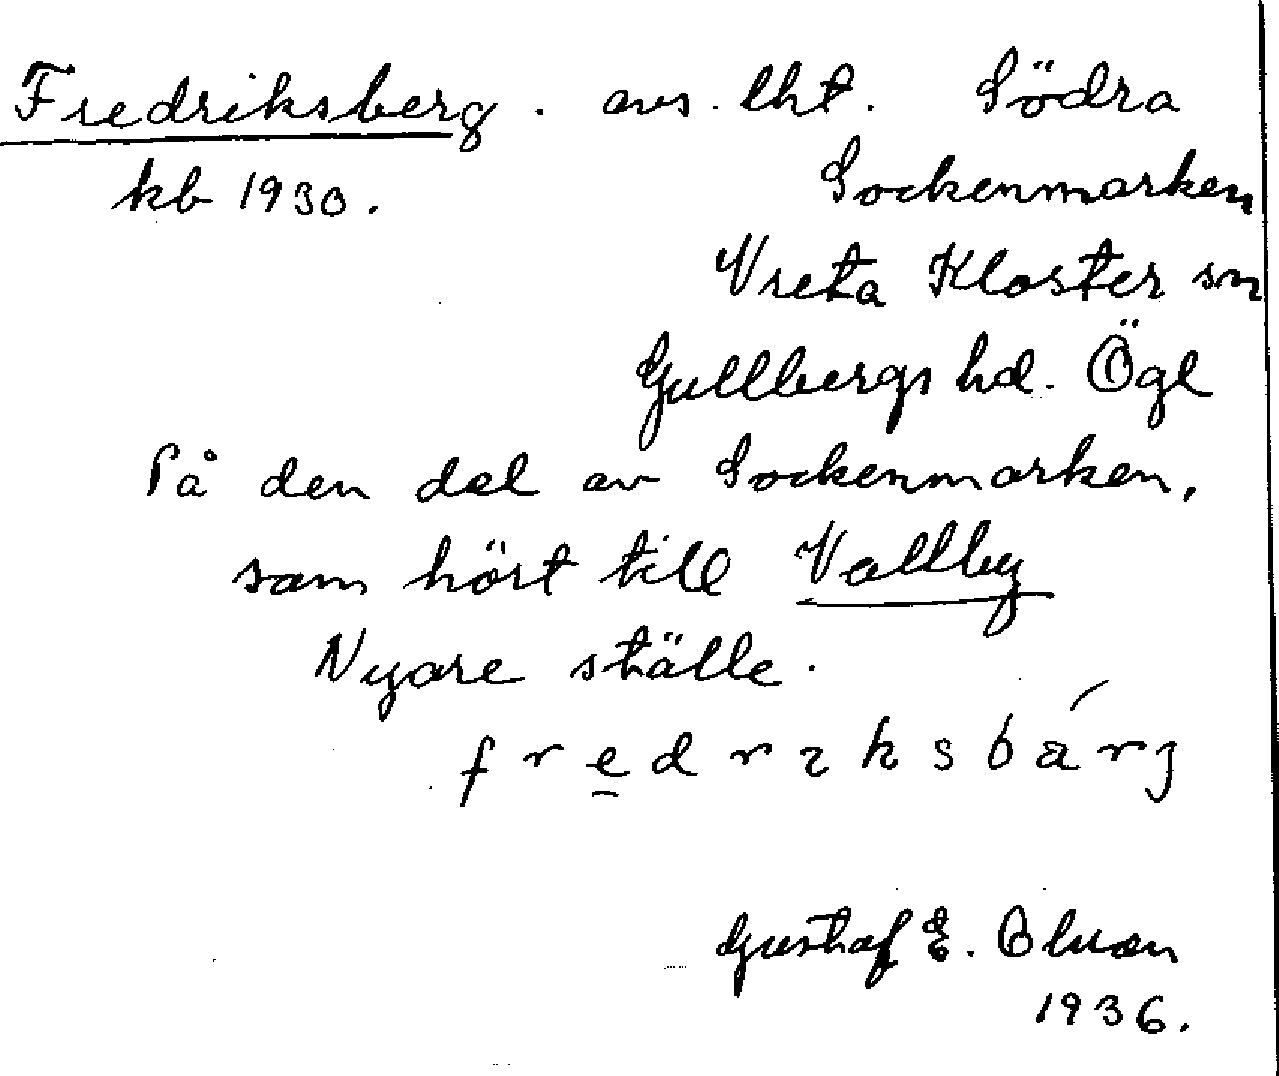 Fredriksberg. avs. lht. Södra
kb 1930. Sockenmarken
Vreta Kloster sn
Gullbergs hd. Ögl
På den del av Sockenmarken,
som hört till Vallby
Nyare ställe.
fredrıksbárj
Gustaf E. Olsson
1936.